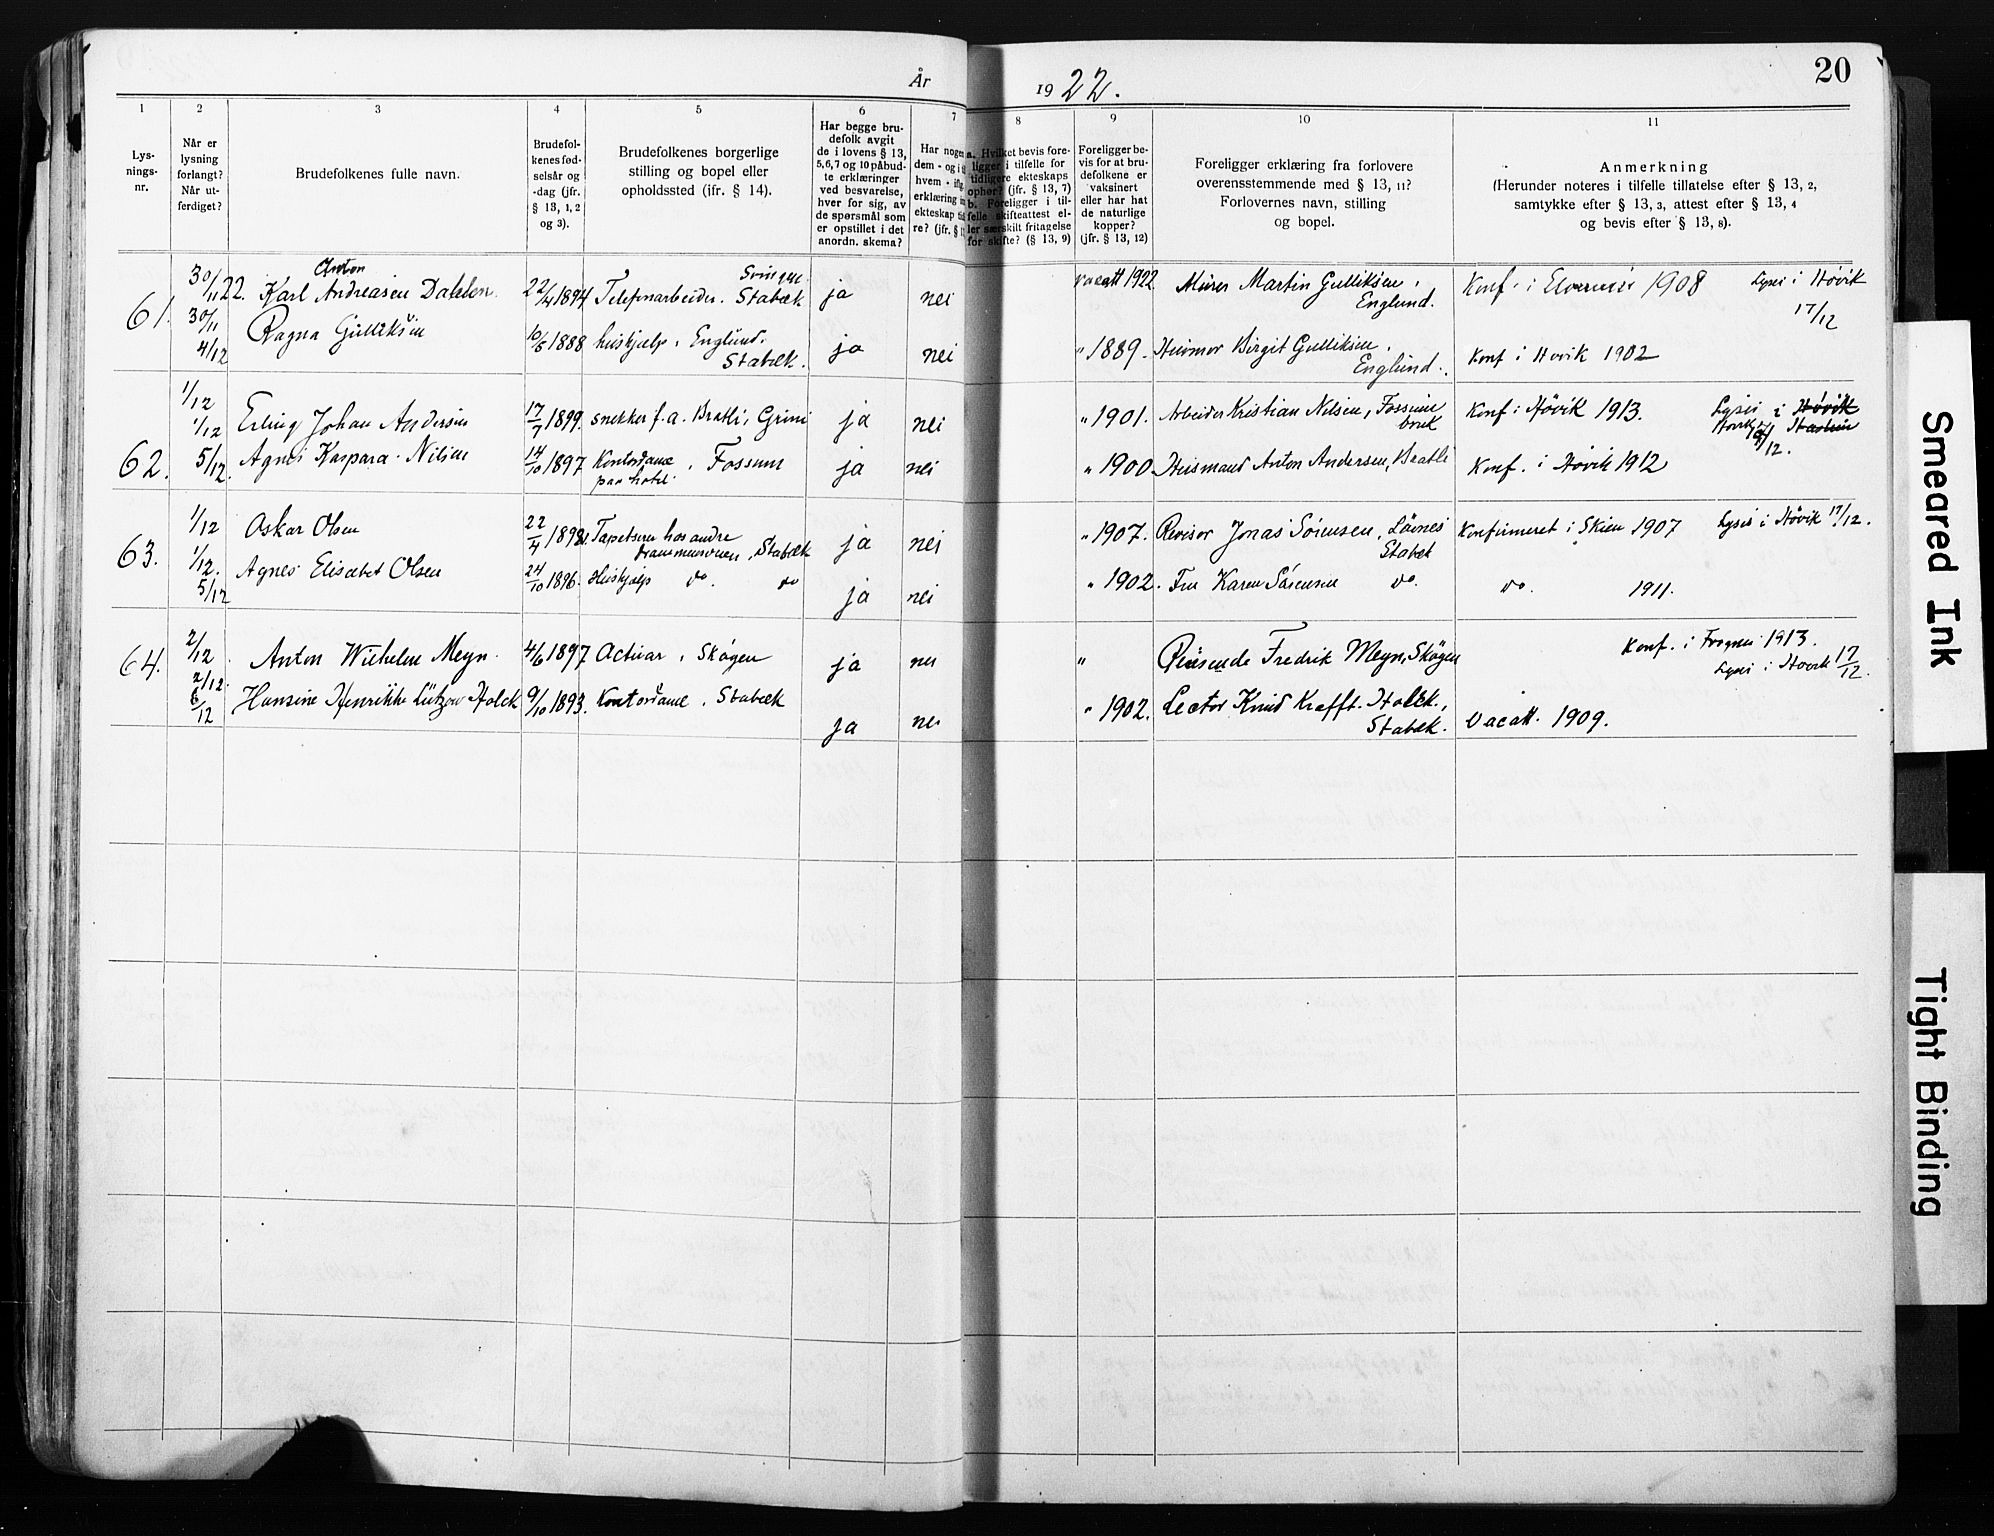 År 1922.
20
1 2 3 4 5 6 7 8 9 10 11
Lys-
nings-
nr.
Når er
lysning
forlangt?
Når ut-
ferdiget?
Brudefolkenes fulle navn.
Brudefol-
kenes fød-
selsår og
-dag (jfr.
§ 13, 1, 2
og 3).
Brudefolkenes borgerlige
stilling og bopel eller
opholdssted (ifr. § 14).
Har begge bru-
defolk avgit
de i lovens § 13,
5,6,7 og 10 påbud-
te erklæringer
ved besvarelse,
hver for sig, av
de spørsmål som
er opstillet i det
anordn. skema?
Har nogen
dem - og i
hvem - ifl.
erklæring
ekteskap
re? (jfr. §
a. Hvilket bevis fore-
ligger i tilfelle for
tidligere ekteskaps
ophør? (jfr. § 13, 7)
b. Foreligger i til-
felle skifteattest el-
ler særskilt fritagelse
for skifte? (§ 13, 9)
Foreligger be-
vis for at bru-
defolkene er
vaksinert
eller har hat
de naturlige
kopper?
(jfr. § 13, 12)
Foreligger erklæring fra forlovere
overensstemmende med § 13, 11?
Forlovernes navn, stilling
og bopel.
Anmerkning
(Herunder noteres i tilfelle tillatelse efter § 13, 2,
samtykke efter § 13, 3, attest efter § 13, 4
og bevis efter § 13, 8).
61. 30/11 22. 30/11 4/12
Anton
Karl Andreasen Dahlen 22/4 1894 Telefonarbeider. Stabæk ja nei vacatt 1922 Murer Martin Gulliksen, Englund. Konf. i 1908 Lyses i Høvik 17/12
Ragna Gulliksen 10/5 1888 hushjelp, Englund. Stabæk. ja nei " 1889. Husmor Birgit Gulliksen, Englund. Konf i Høvik 1902
62. 1/12 1/12 5/12.
Erling Johan Andersen 17/7 1899. snekker f.a. Bratli, Grini ja nei " 1901. Arbeider Kristian Nilsen, Fossum bruk Konf i Høvik 1913. Lyses i Høvik
Agnes Kaspara Nilsen 14/10 1897 Kontordame paa hotel. Fossum ja nei " 1900. Husmand Anton Andersen, Bratli Konf. i Høvik 1912
63. 1/12 1/12. 5/12
Oskar Olsen 22/4 1892. Tapetserer hos andre Drammensveien, Stabæk ja nei " 1907. Revisor Jonas Sörensen, Lövnes Stabæk Konfirmeret i Skien 1907 Lyses i Høvik 17/12.
Agnes Elisabet Olsen 24/10 1896. Hushjælp do. do ja nei " 1902. Fru Karen Sörensen do. do. 1911.
64. 2/12 2/12. 6/12
Anton Wilhelm Meyn 4/6 1897 Actuar, Skøyen ja nei " Reisende Fredrik Meyn, Skøyen Konf. i Frogner 1913. Lyses i Høvik 17/12.
Hansine Henrikke Lützow Holck 9/10 1893. Kontordame, Stabæk ja nei " 1902. Lector Knud Krafft Holck, Stabæk. Vacatt. 1909.
Smeared Ink
Tight Binding